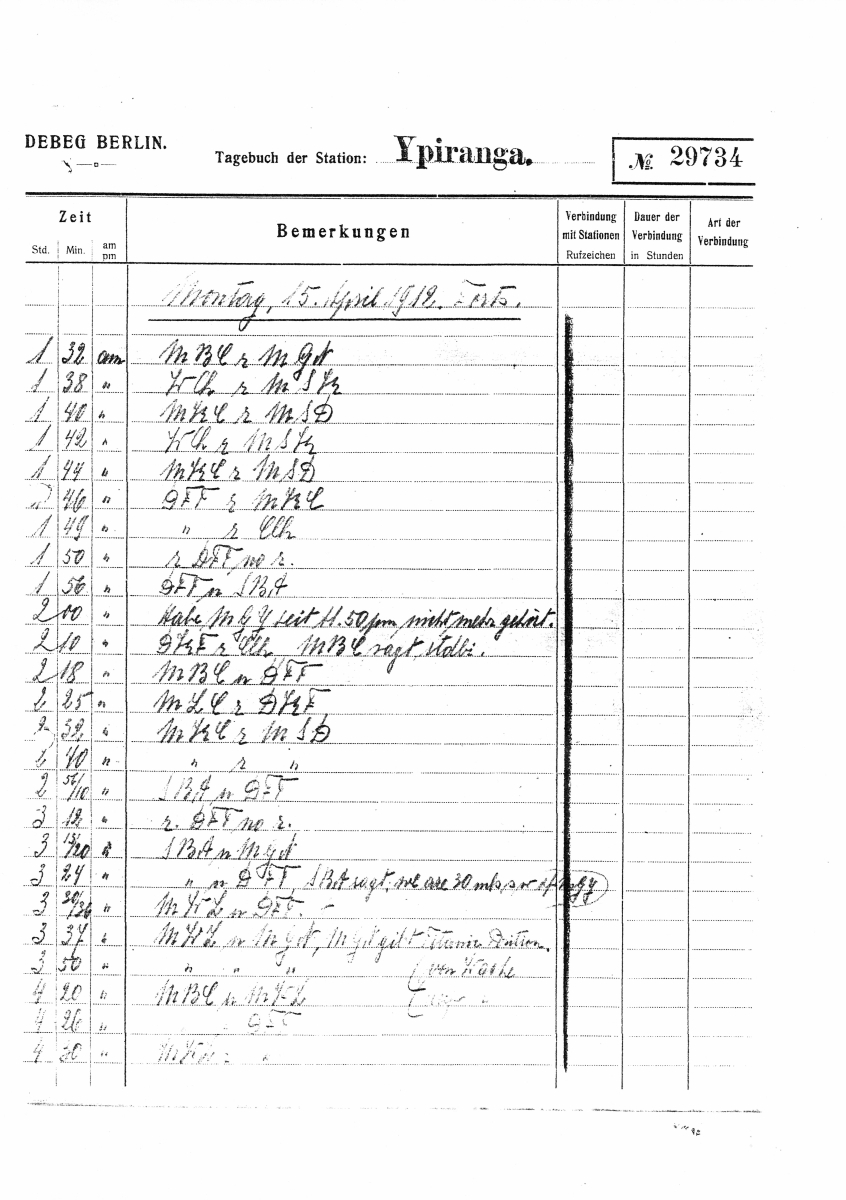 DEBEG BERLIN.
Tagebuch der Station: Ypiranga.
№ 29734
Zeit
Std. Min. am pm
Bemerkungen
Verbindung mit Stationen Rufzeichen
Dauer der Verbindung in Stunden
Art der Verbindung
Montag, 15. April 1912. Forts.
1 32 am MBC r MGN
1 38 "
1 40 " MKC r MSD
1 42 "
1 44 " MKC r MSD
46 " DFT r MKC
1 49 " " r Clh
1 50 " r DFT, no r.
1 56 " DFT n SBA
2 00 " Habe MGY seit 11.50 pm nicht mehr gehört.
2 10 " DKF r Clh MBC sagt, stdbi.
2 18 " MBC n DFT
2 25 " MLC r DKF
2 32 " MKC r MSD
2 40 " " r "
2 56/10 " SBA n DFT
3 12 " r. DFT no r.
3 15/20 " SBA n MGN
3 24 " " n DFT, SBA sagt, we are 30 mls, s w of MGY
3 30/36 " MWL n DFT. –
3 37 " MWL n MGN, MGN gibt Titanic
3 50 " " " " von Wache
4 20 " MBC n MWL
4 26 " DFT
4 30 "